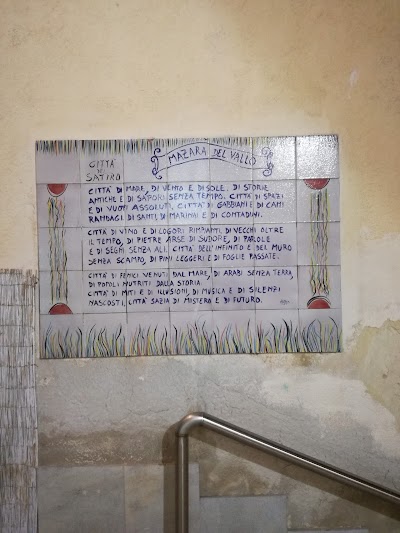 MAZARA DEL VALLO
CITTÀ
SATIRO
CITTÀ DI MARE, DI VENTO E DI SOLE. DI STORIE
ANTICHE E DI SAPORI SENZA TEMPO. CITTÀ DI SPAZI
E DI VUOTI ASSOLUTI. CITTÀ DI GABBIANI E DI CANI
RANDAGI. DI SANTI, DI MARINAI E DI CONTADINI.
CITTÀ DI VINO E DI LOGORI RIMPIANTI. DI VECCHI OLTRE
IL TEMPO, DI PIETRE ARSE DI SUDORE, DI PAROLE
E DI SEGNI SENZA ALI. CITTÀ DELL'INFINITO E DEL MURO
SENZA SCAMPO, DI PINI LEGGERI E DI FOGLIE PASSATE.
CITTÀ DI FENICI VENUTI DAL MARE, DI ARABI SENZA TERRA,
DI POPOLI NUTRITI DALLA STORIA.
CITTÀ DI MITI E DI ILLUSIONI, DI MUSICA E DI SILENZI
NASCOSTI. CITTÀ SAZIA DI MISTERO E DI FUTURO.